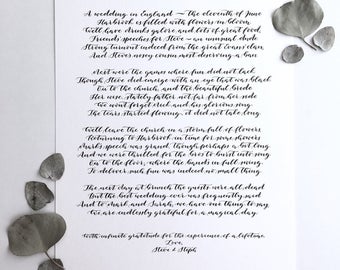 A wedding in England ~ the eleventh of June
Harbrook is filled with flowers in bloom
We'll have drinks galore and lots of great food
Friends speeches for Steve ~ an unusual dude
Strong turnout indeed from the great clan
And Steve's nosey cousin most deserving a ban

Next were the games where fun did not lack
Though Steve did emerge with an eye that was black
On to the church, and the beautiful bride
Her wise, stately father not far from her side
We won't forget and his glorious song
The tears started flowing, it did not take long

We'll leave the church in a storm full of flowers
Returning to Harbrook in time for some showers
Mark's speech was grand, though perhaps a bit long
And we were thrilled for the bros to burst into song
On to the floor, where the bands in full swing
To deliver such fun was indeed no small thing

The next day at brunch the guests were all dead
But the best wedding ever was frequently said
And to Mark and Sarah, we have one thing to say
We are endlessly grateful for a magical day.

With infinite gratitude for the experience of a lifetime
Love,
Steve & Steph